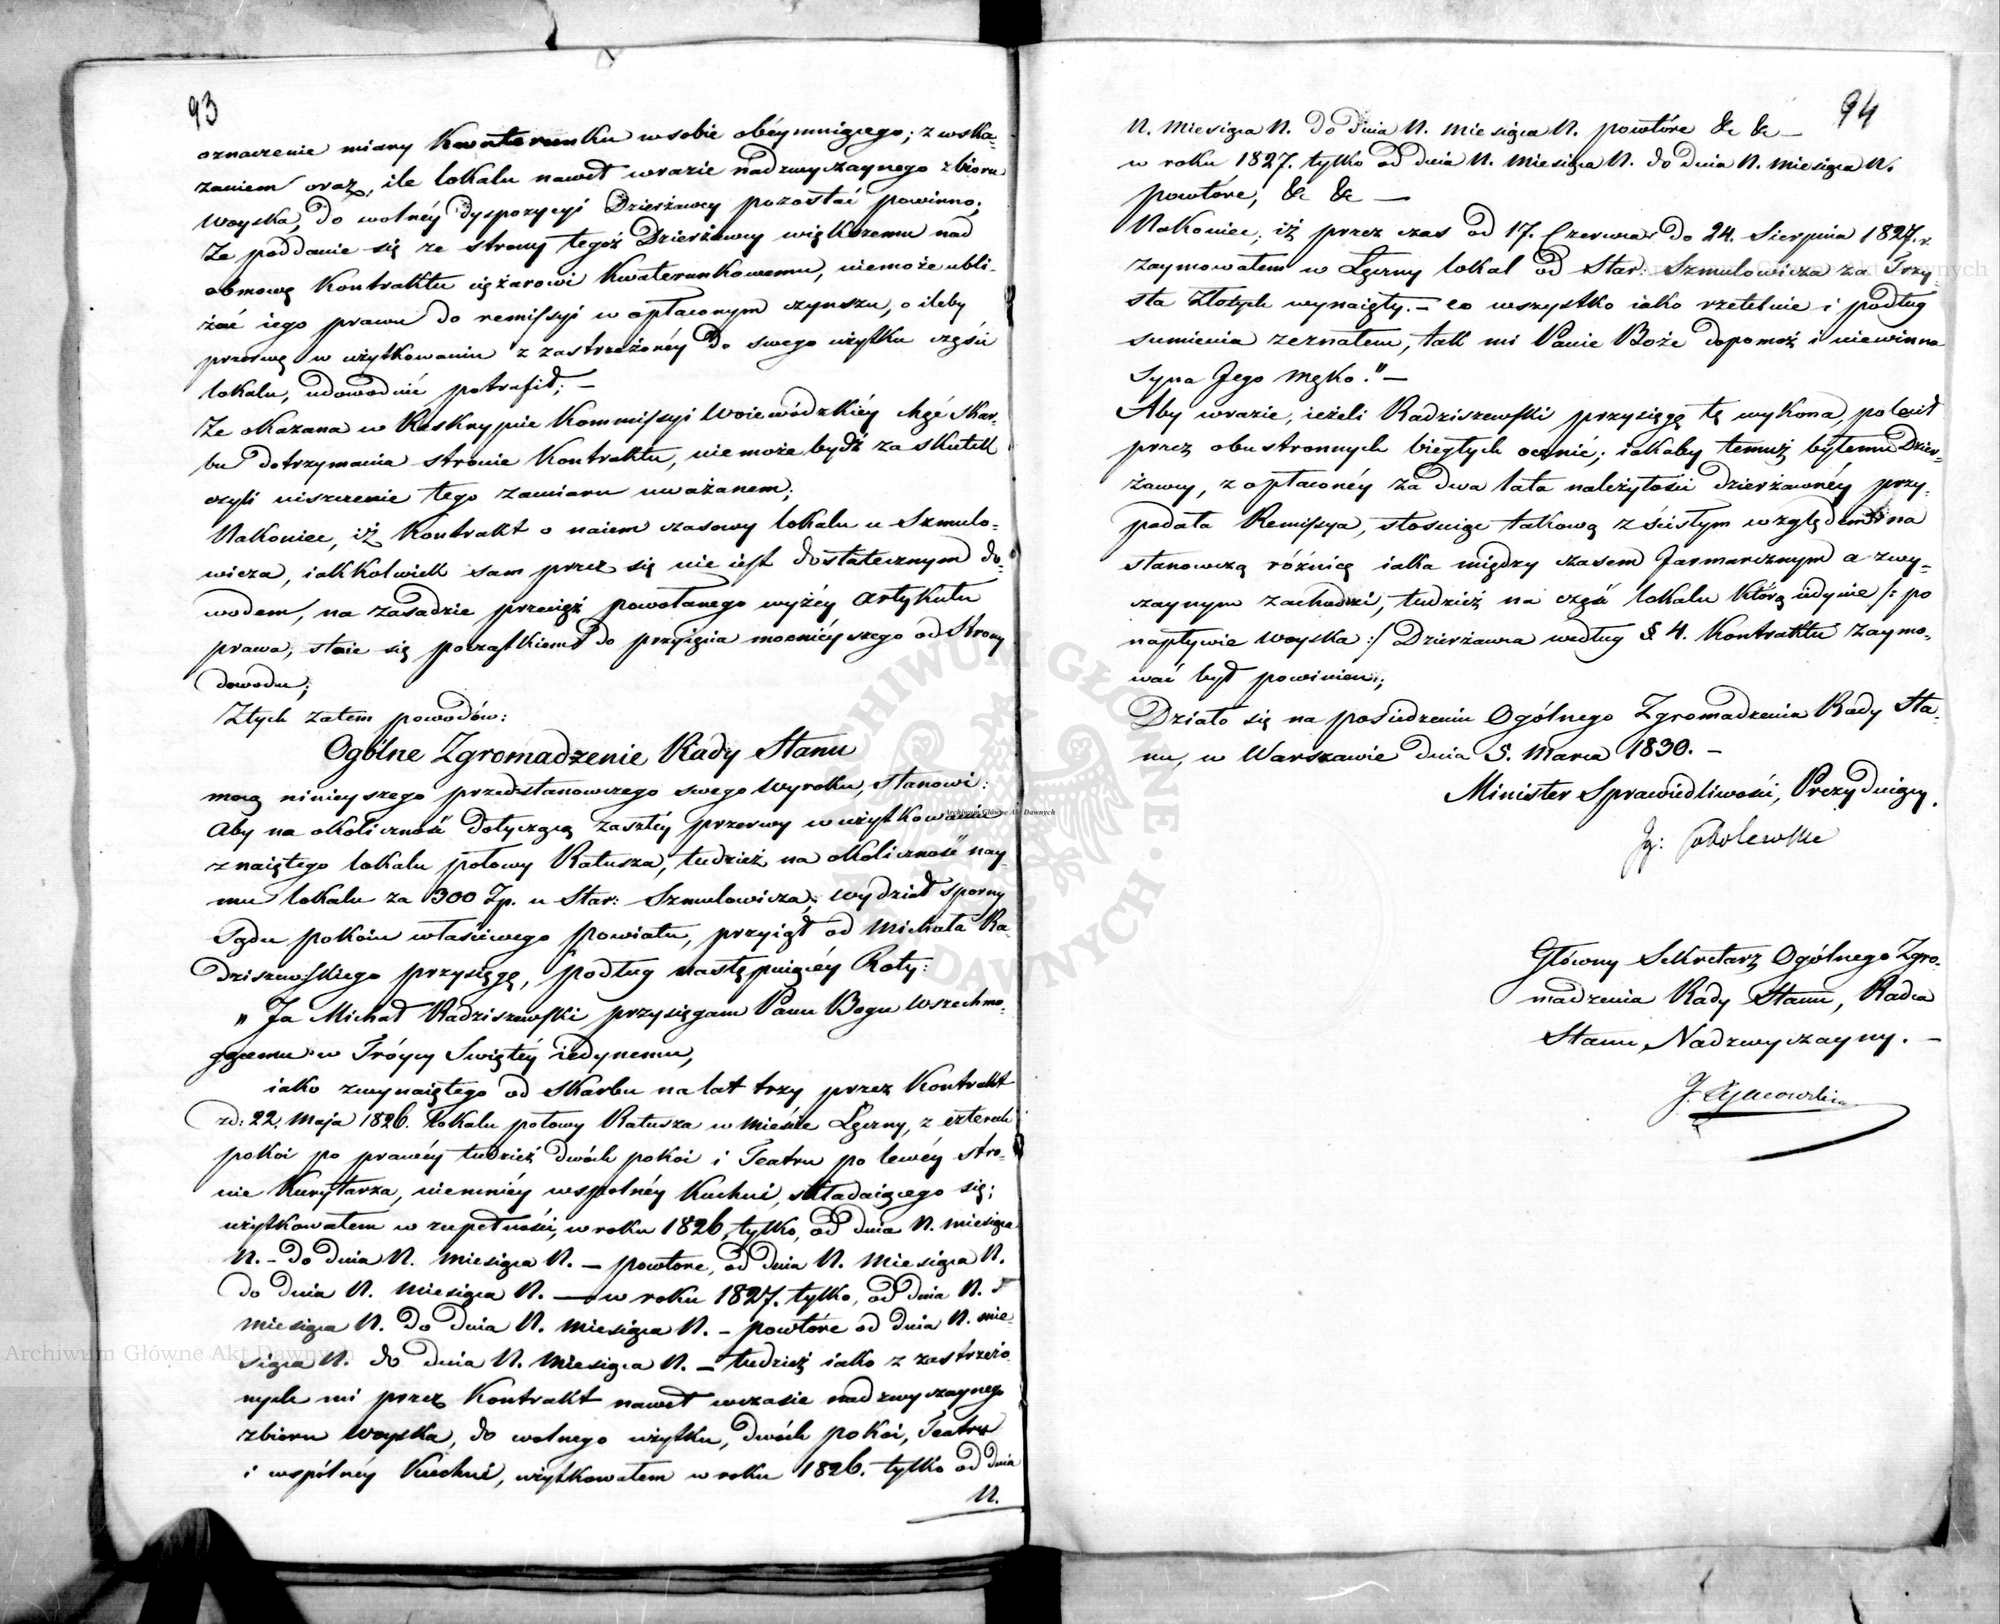 93
oznaczenie miary Kwaterunku w sobie obéymuiącego; z wska-
zaniem oraz, ile lokalu nawet wrazie nadzwyczaynego zbioru
Woyska, do wolnéy dyspozycyi Dzierżawcy pozostać powinno;
Że poddanie się ze strony tegoż Dzierżawcy większemu nad
osnowę Kontraktu ciężarowi Kwaterunkowemu, niemoże ubli-
żać iego prawu do remissyi w opłaconym czynszu, o ileby
przerwę w użytkowaniu z zastrzeżonéy do swego użytku części
lokalu, udowodnić potrafił; –
Że okazana w Reskrypcie Kommissyi Woiewódzkiéy chęć Skar-
bu dotrzymania stronie Kontraktu, nie może bydź za skutek
czyli uiszczenie tego zamiaru uważanem;
Nakoniec, iż Kontrakt o naiem czasowy lokalu u Szmulo-
wicza, iakkolwiek sam przez się nie iest dostatecznym do-
wodem, na zasadzie przecież powołanego wyżéy Artykułu
prawa, staie się początkiem do przyięcia mocniéyszego od Strony
dowodu;
Z tych zatem powodów:
Ogólne Zgromadzenie Rady Stanu
mocą ninieyszego przedstanowczego swego Wyroku, stanowi:
Aby na okoliczność dotyczącą zaszłéy przerwy w użytkowaniu
z naiętego lokalu połowy Ratusza, tudzież na okoliczność nay-
mu lokalu za 300 Zp. u Star: Szmulowicza, Wydział Sporny
Sądu pokoiu właściwego Powiatu, przyiął od Michała Ra-
dziszewskiego przysięgę, podług następuiącéy Roty:
„ Ja Michał Radziszewski przysięgam Panu Bogu Wszechmo-
gącemu w Tróycy Swiętéy iedynemu,
iako zwynaiętego od Skarbu na lat trzy przez Kontrakt
zd: 22. Maja 1826. Lokalu połowy Ratusza w mieście Łęczny, z czterech
pokoi po prawéy tudzież dwóch pokoi i Teatru po lewéy stro-
nie Kurytarza, niemniéy wspolnéy Kuchni, składaiącego się;
użytkowałem w zupełności, w roku 1826 tylko, od dnia N. miesiąca
N. – do dnia N. Miesiąca N. – powtore, od dnia N. Miesiąca N.
do dnia N. Miesiąca N. – w roku 1827. tylko, od dnia N.
Miesiąca N. do dnia N. Miesiąca N. – powtóre od dnia N. mie-
siąca N. do dnia N. Miesiąca N. – tudzież iako z zastrzeżo-
nych mi przez Kontrakt nawet wczasie nadzwyczaynego
zbioru Woyska, do wolnego użytku, dwóch pokoi, Teatru
i wspólnéy Kuchni, użytkowałem w roku 1826. tylko od dnia
N.
94
N. Miesiąca N. do dnia N. Miesiąca N. powtóre &c &c –
w roku 1827. tylko od dnia N. Miesiąca N. do dnia N. Miesiąca N.
powtóre, &c &c –
Nakoniec, iż przez czas od 17. Czerwca do 24. Sierpnia 1827. r.
zaymowałem w Łęczny lokal od Star: Szmulowicza za Trzy-
sta Złotych wynaięty. – co wszystko iako rzetelnie i podług
sumienia zeznałem, tak mi Panie Boże dopomoż i niewinna
Syna Jego Męko.” –
Aby wrazie, ieżeli Radziszewski przysięgę tę wykona, polecił
przez obustronnych biegłych ocenić, iakaby temuż byłemu Dzier-
żawcy, z opłaconéy za dwa lata należytości dzierżawnéy przy-
padała Remissya, stosuiąc takową z ścisłym względem na
stanowczą różnicę iaka między czasem Jarmarcznym a zwy-
czaynym zachodzi, tudzież na część lokalu którą iedynie /: po
napływie Woyska :/ Dzierżawca według § 4. Kontraktu zaymo-
wać był powinien;
Działo się na posiedzeniu Ogólnego Zgromadzenia Rady Sta-
nu, w Warszawie dnia 5. Marca 1830. –
Minister Sprawiedliwości, Prezyduiący.
Ig: Sobolewski
Główny Sekretarz Ogólnego Zgro-
madzenia Rady Stanu, Radca
Stanu Nadzwyczayny. –
Archiwum Główne Akt Dawnych
Archiwum Główne Akt Dawnych
Archiwum Główne Akt Dawnych
ARCHIWUM GŁÓWNE AKT DAWNYCH